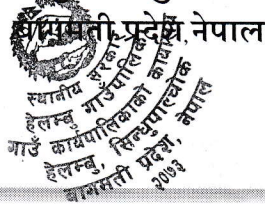 बागमती प्रदेश, नेपाल
स्थानीय सरकार
हेलम्बु गाउँपालिका
गाउँ कार्यपालिकाको कार्यालय
हेलम्बु, सिन्धुपाल्चोक
बागमती प्रदेश, नेपाल
२०७३